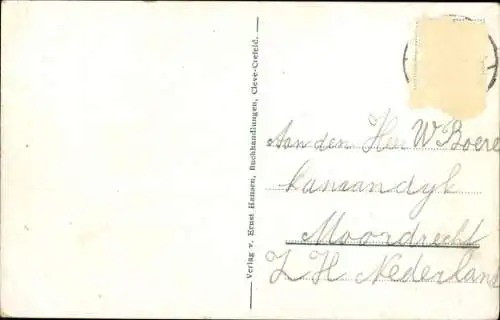 Verlag v. Ernst Hansen, Buchhandlungen, Cleve-Crefeld.
Aan den Heer W Boere
Kanaandyk
Moordrecht
Z H Nederland